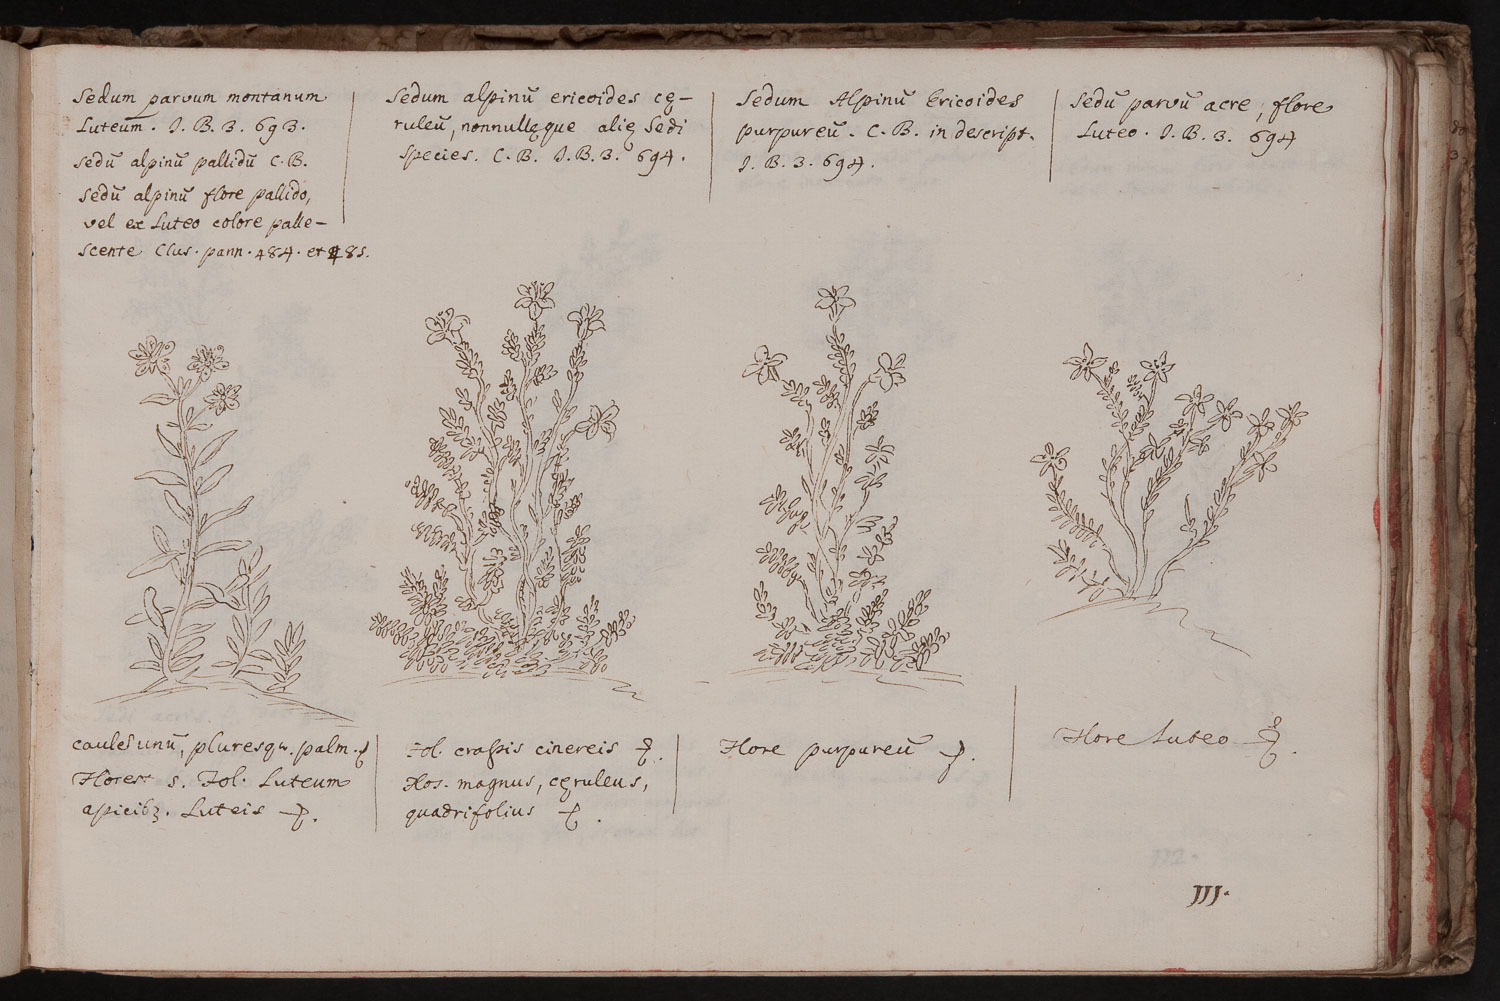 Sedum parvum montanum
Luteum. J. B. 3. 693.
Sedū alpinū pallidū C. B.
Sedū alpinū flore pallido,
vel ex Luteo colore palle-
scente Clus. pann. 484. et 485.
Sedum alpinū ericoides cę-
ruleū, nonnullęque alię Sedi
species. C. B. J. B. 3. 694.
Sedum Alpinū Ericoides
purpureū. C. B. in descript.
J. B. 3. 694.
Sedū parvū acre, flore
Luteo. J. B. 3. 694
caules unū, pluresqȝ. palm.
Flores s. Fol. Luteum
apicibȝ. Luteis
Fol. crassis cinereis
Flos. magnus, cęruleus,
quadrifolius
Flore purpureū
Flore Luteo
111.